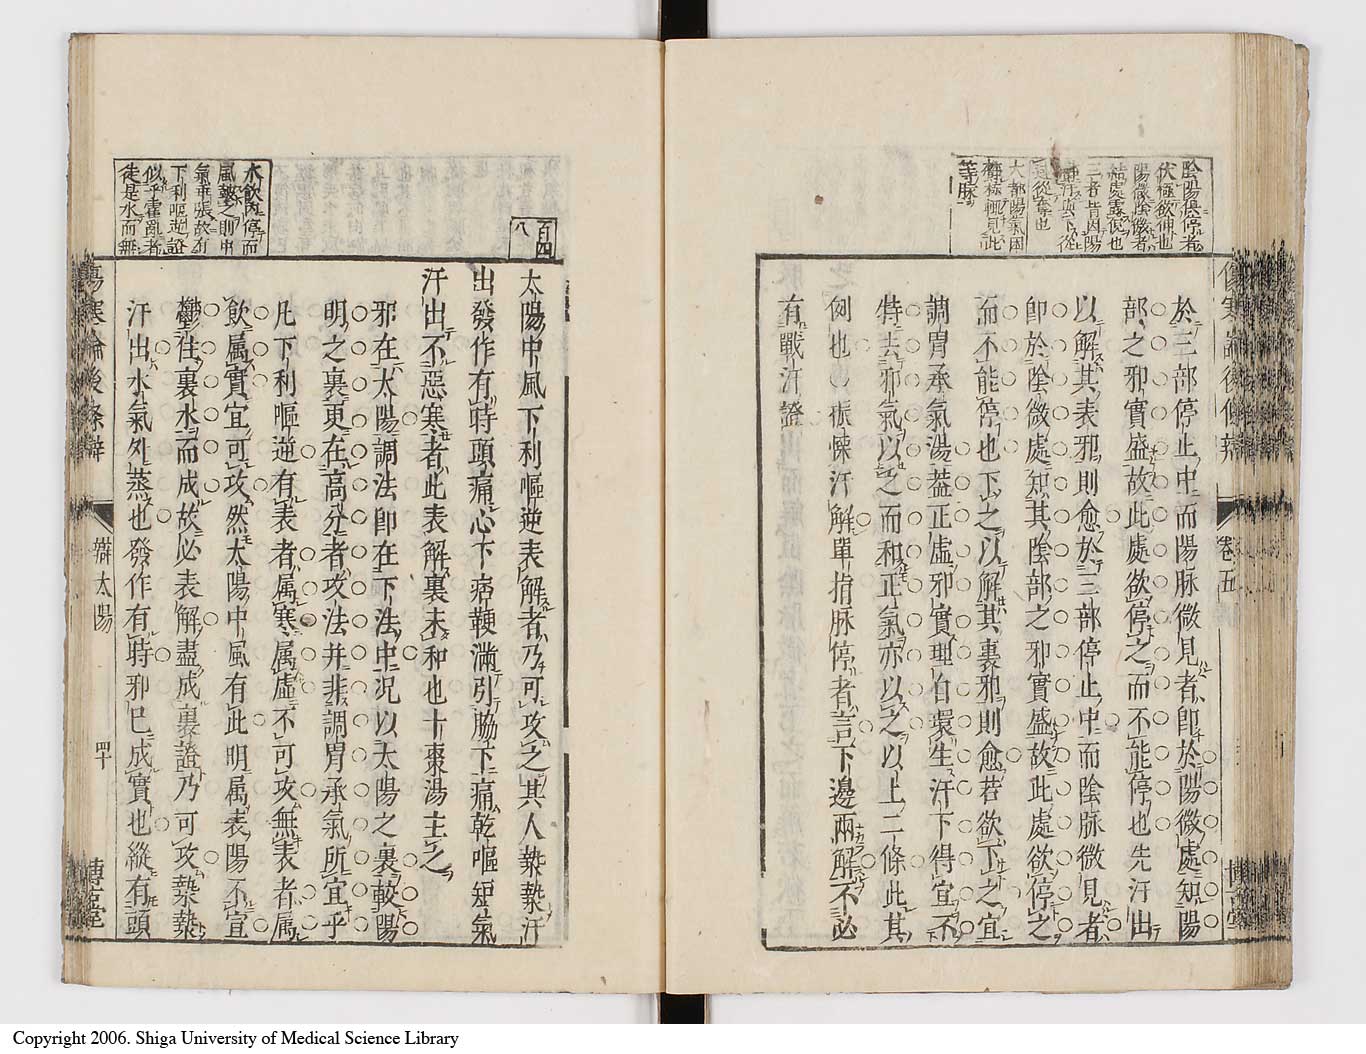 陰陽俱停者
伏極欲伸也
陽微陰微者
結處露倪也
三者皆因陽
大都陽氣困
等脉
傷寒論後條辨
卷五
於三部停止中而陽脉微見者卽於陽微處知陽
部之邪實盛故此處欲停之而不能停也先汗出
以解其表邪則愈於三部停止中而陰脉微見者
卽於陰微處知其陰部之邪實盛故此處欲停之
而不能停也下之以解其裏邪則愈若欲下之宜
調胃承氣湯葢正虛邪實理自環生汗下得宜不
特去邪氣以之而和正氣亦以之以上二條此其
例也振慄汗解單指脉停者言下邊兩解不必
有戰汗證
百四
八
水飮内停而
風擊之則中
氣乖張故有
下利嘔逆證
似乎霍亂者
徒是水而無
太陽中風下利嘔逆表解者乃可攻之其人漐漐汗
出發作有時頭痛心下痞鞕滿引脇下痛乾嘔短氣
汗出不惡寒者此表解裏未和也十棗湯主之
邪在太陽調法卽在下法中况以太陽之裏較陽
明之裏更在高分者攻法并非調胃承氣所宜乎
凡下利嘔逆有表者属寒属虛不可攻無表者属
飮属實宜可攻然太陽中風有此明属表陽不宜
鬱住裏水而成故必表解盡成裏證乃可攻漐漐
汗出水氣外蒸也發作有時邪已成實也縱有頭
傷寒論後條辨
辨太陽
四十
博古堂
Copyright 2006. Shiga University of Medical Science Library